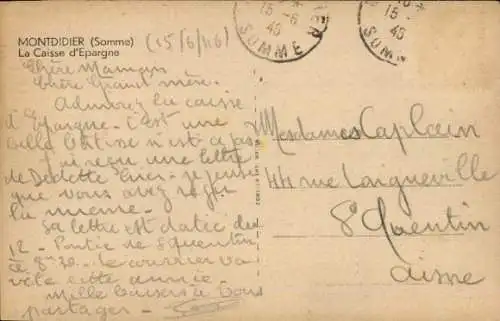 MONTDIDIER (Somme)
La Caisse d'Epargne
(15/6/46)
15-6
SOMME
15-
46
SOMME
Chère Maman
Chère Grand mère.
Admirez la caisse
d'Epargne - C'est une
belle bâtisse n'est-ce pas
J'ai reçu une lettre
de Dedette hier - je pense
que vous avez reçu
la même -
Sa lettre est datée du
12 - Partie de St Quentin
à 8h30 - le courrier va
vite cette année -
Mille baisers à vous
partager -
Mesdames Caplain
44 rue Longueville
St Quentin
Aisne